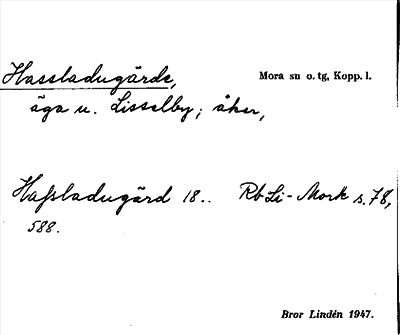 Hassladugärde, Mora sn o. tg, Kopp. l.
äga u. Lisselby; åker,
Haſsladugärd 18.. Rb Li-Mork s. 78,
588.
Bror Lindén 1947.